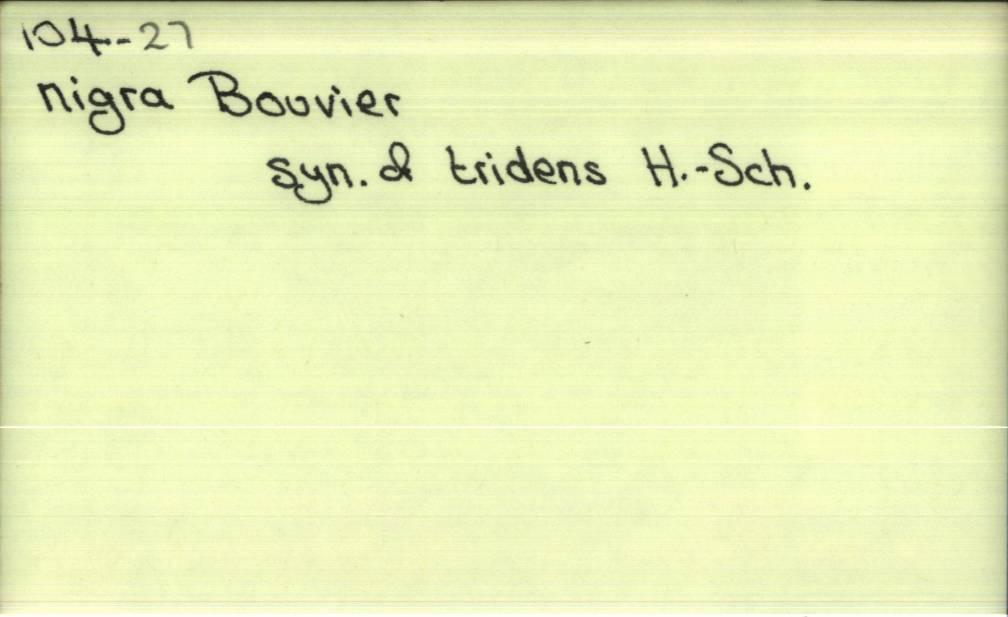 104-27
nigra Bouvier
syn. of tridens H.-Sch.